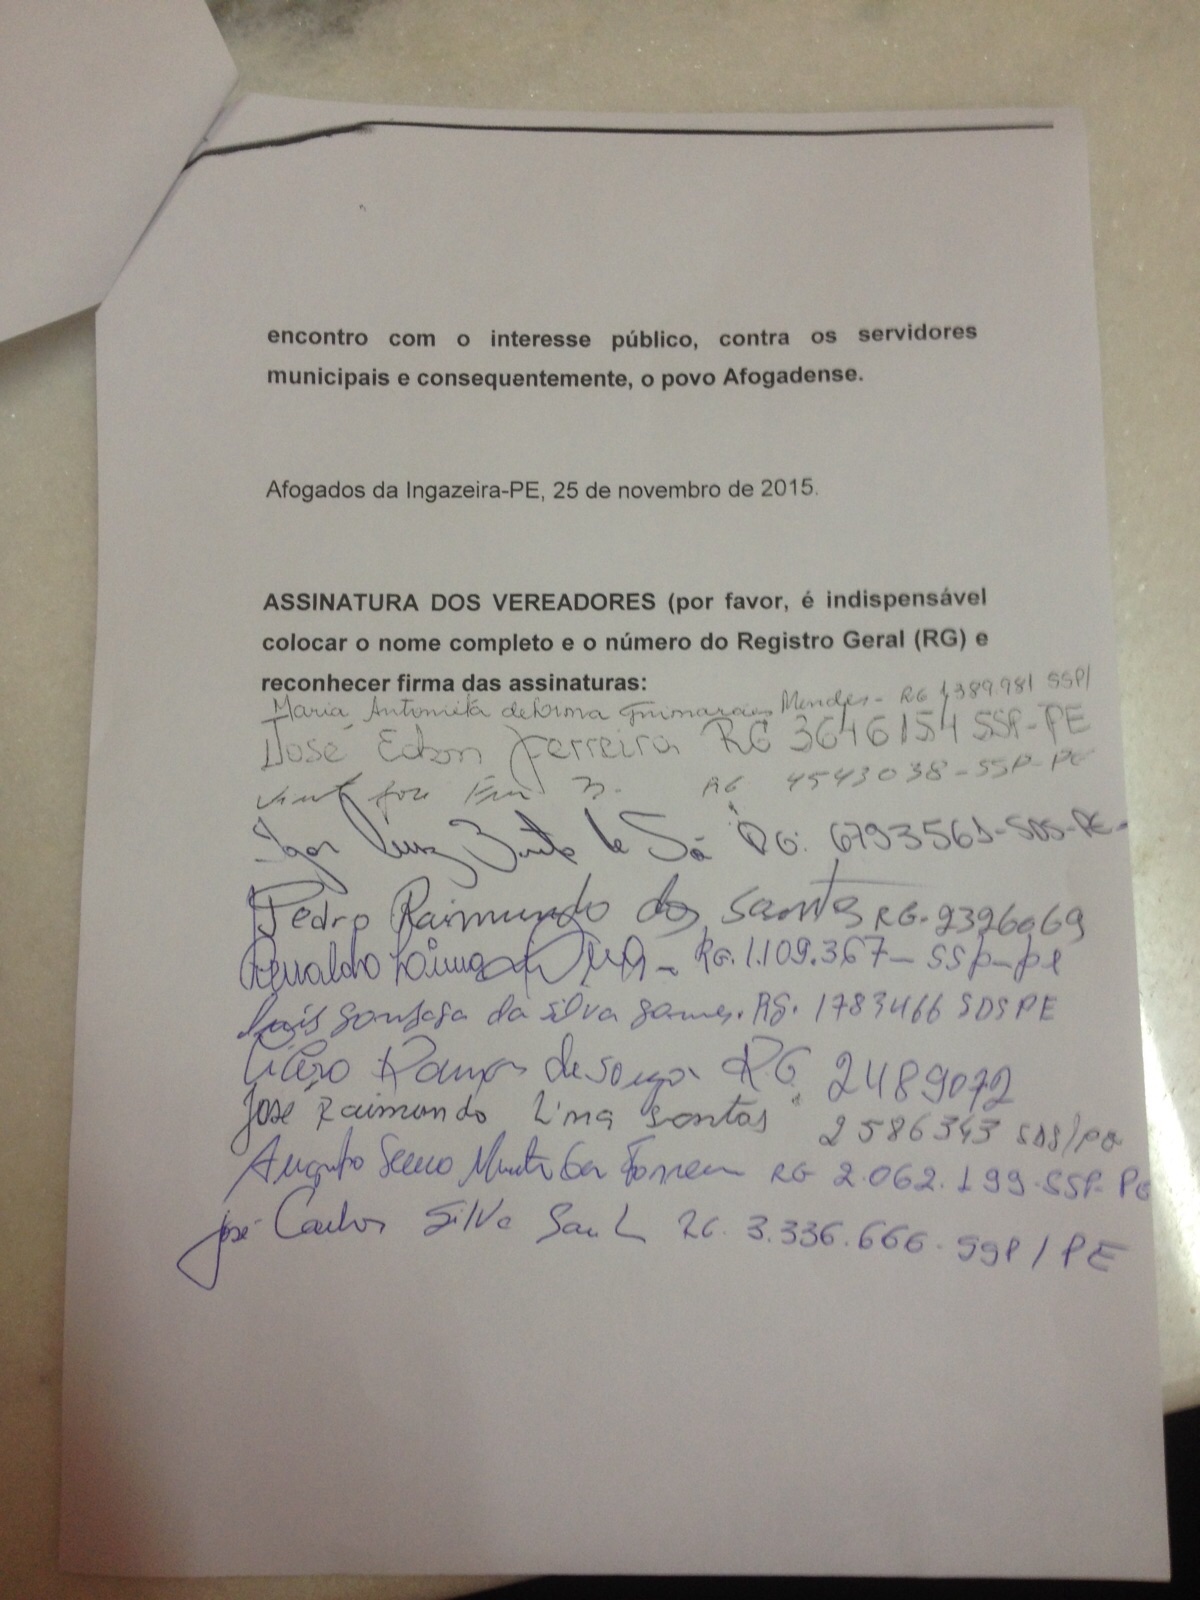 encontro com o interesse público, contra os servidores
municipais e consequentemente, o povo Afogadense.
Afogados da Ingazeira-PE, 25 de novembro de 2015.
ASSINATURA DOS VEREADORES (por favor, é indispensável
colocar o nome completo e o número do Registro Geral (RG) e
reconhecer firma das assinaturas:
Maria Antonieta Guimarães Mendes - RG 1389.981 SSP/
José Edson Ferreira RG 3646154 SSP-PE
RG 4543038-SSP-PE
Igor de Sá RG: 6793561-SDS-PE-
Pedro Raimundo dos Santos RG.2326069
Renaldo Lima - RG.1.109.367-SSP-pe
Luis gonzaga da silva gomes. RG. 1783466 SDS PE
Cícero Ramos de souza RG 2489072
José Raimundo Lima santos 2586343 SDS/PE
Augusto RG 2.062.199-SSP-PE
José Carlos Silva RG. 3.336.666-SSP/PE